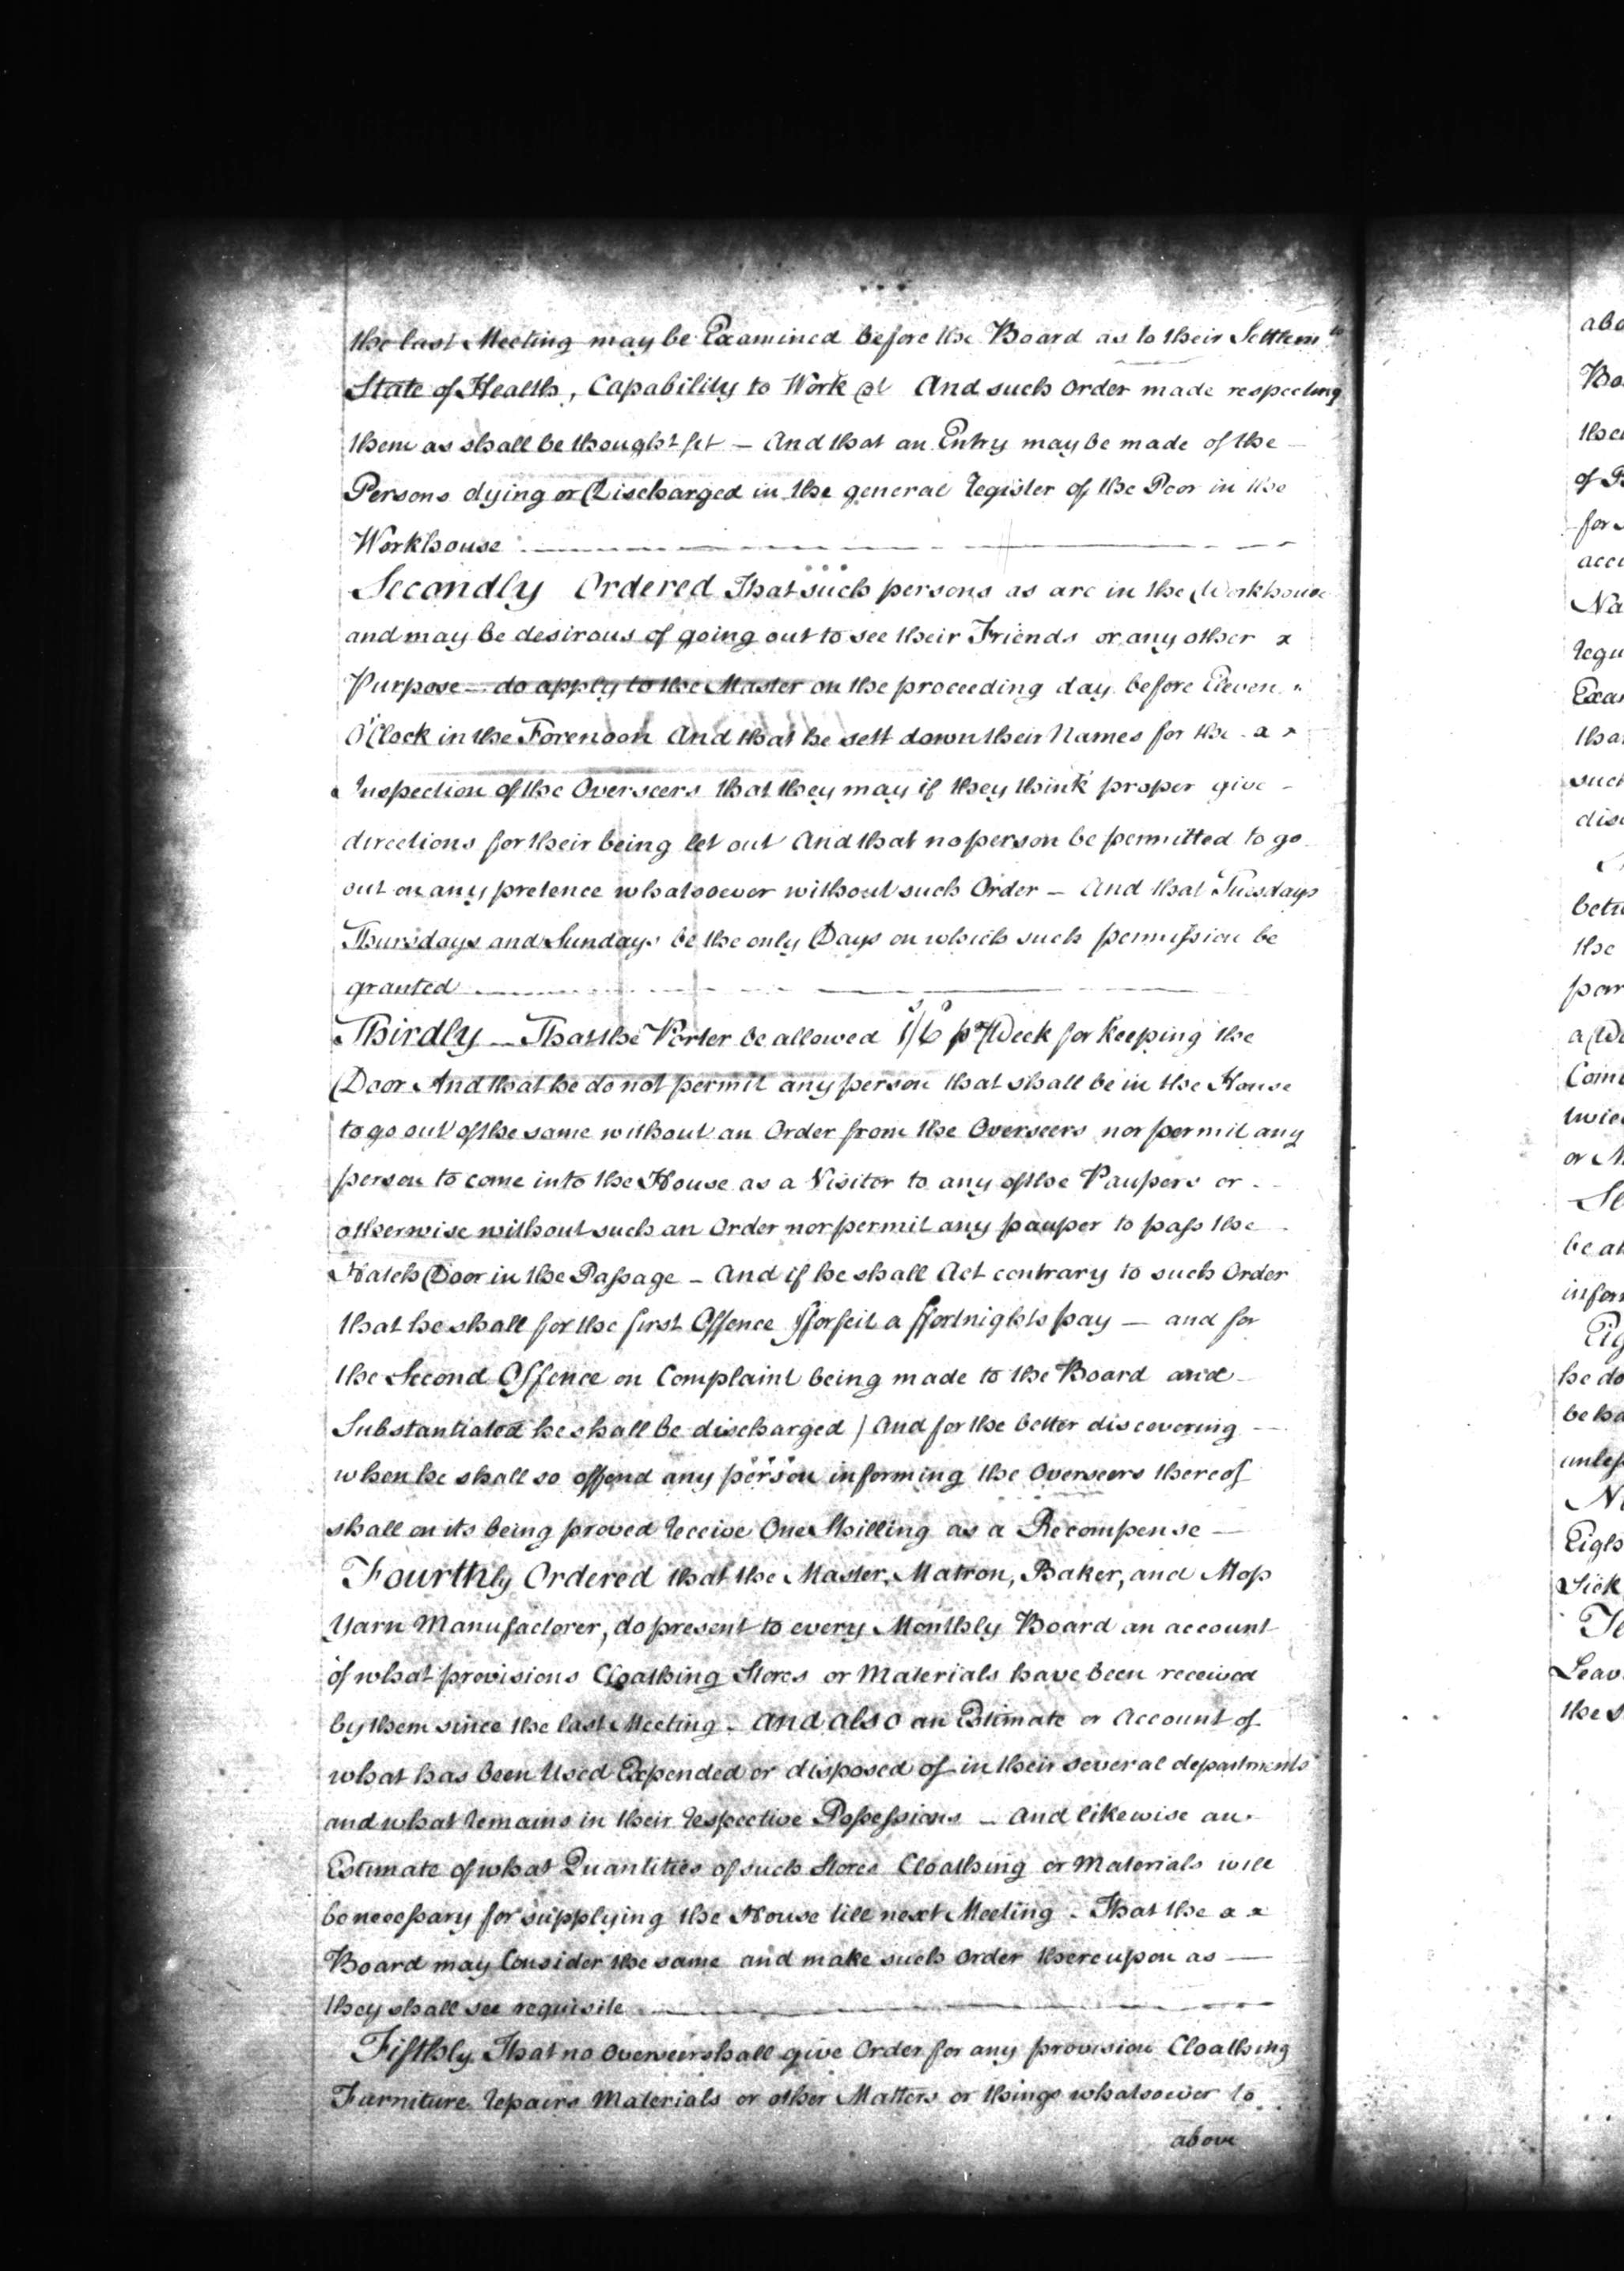 the last Meeting may be Examined before the Board as to their Settlem.ts
State of Health, Capability to Work &c And such Order made respecting
them as shall be thought fit — And that an Entry may be made of the
Persons dying or Discharged in the general Register of the Poor in the
Workhouse
Secondly Ordered That such persons as are in the Workhouse
and may be desirous of going out to see their Friends or any other x
Purpose — do apply to the Master on the proceeding day before Eleven
O'Clock in the Forenoon And that he sett down their Names for the x x
Inspection of the Overseers that they may if they think proper give
directions for their being let out And that no person be permitted to go
out on any pretence whatsoever without such Order — And that Tuesdays
Thursdays and Sundays be the only Days on which such permission be
granted
Thirdly — That the Porter be allowed 1s/6d pr Week for keeping the
Door And that he do not permit any person that shall be in the House
to go out of the same without an Order from the Overseers nor permit any
person to come into the House as a Visitor to any of the Paupers or
otherwise without such an Order nor permit any pauper to pass the
Hatch Door in the Passage — And if he shall Act contrary to such Order
that he shall for the first Offence fforfeit a ffortnights pay — and for
the Second Offence on Complaint being made to the Board and
Substantiated he shall be discharged / And for the better discovering
when he shall so offend any person informing the Overseers thereof
shall on its being proved receive One Shilling as a Recompense —
Fourthly Ordered that the Master, Matron, Baker, and Mop
Yarn Manufactorer, do present to every Monthly Board an account
of what provisions Cloathing Stores or Materials have been received
by them since the last Meeting — And also an Estimate or Account of
what has been Used Expended or disposed of in their several departments
and what remains in their respective Possessions — And likewise an
Estimate of what Quantities of such Stores Cloathing or Materials will
be necessary for supplying the House till next Meeting — That the x x
Board may Consider the same and make such Order thereupon as —
they shall see requisite
Fifthly That no Overseer shall give Order for any provision Cloathing
Furniture repairs Materials or other Matters or things whatsoever to
above